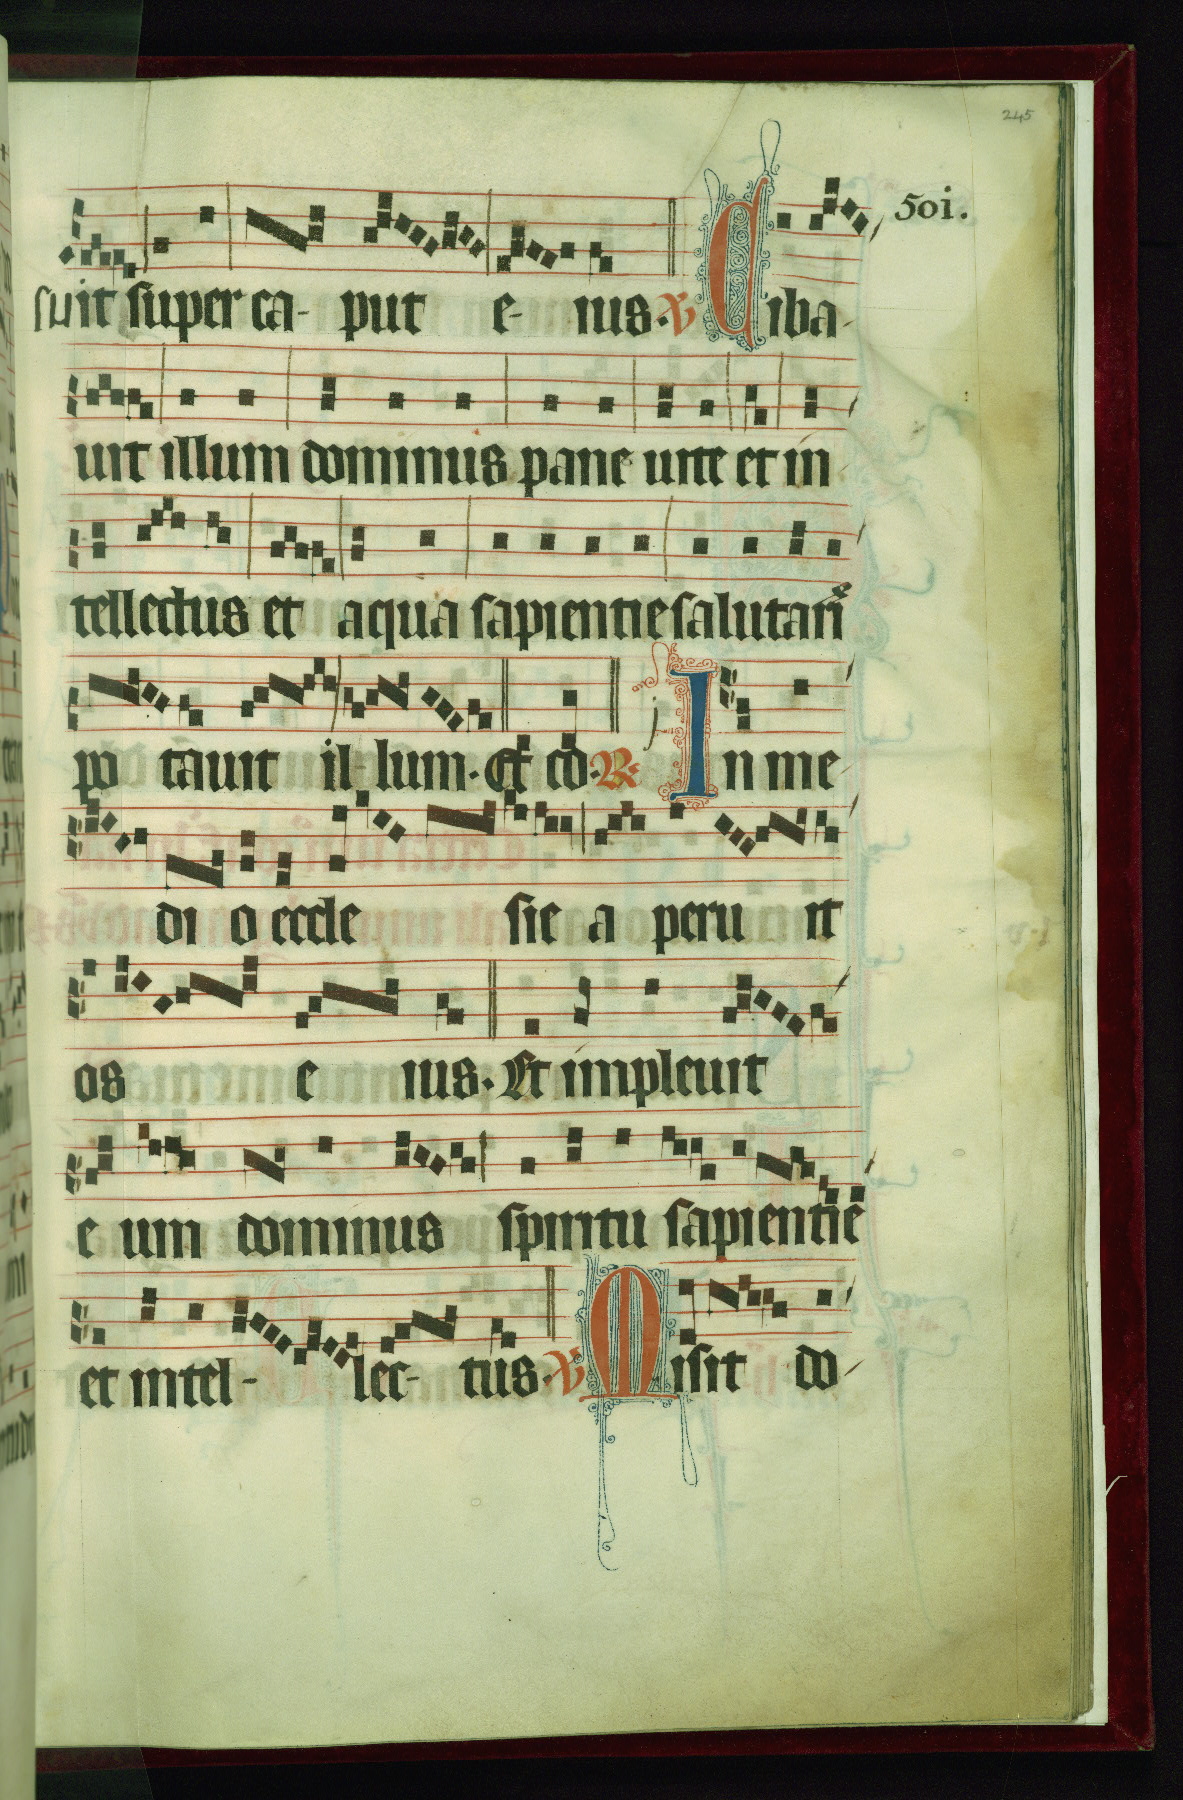 245
501.
suit super ca- put e- ius. V Ciba-
uit illum dominus pane uite et in
tellectus et aqua sapientie salutari
po tauit il- lum. Et cō. R. In me
di o eccle sie a peru it
os e ius. Et impleuit
e um dominus spiritu sapientie
et intel- lec- tus. V Misit do